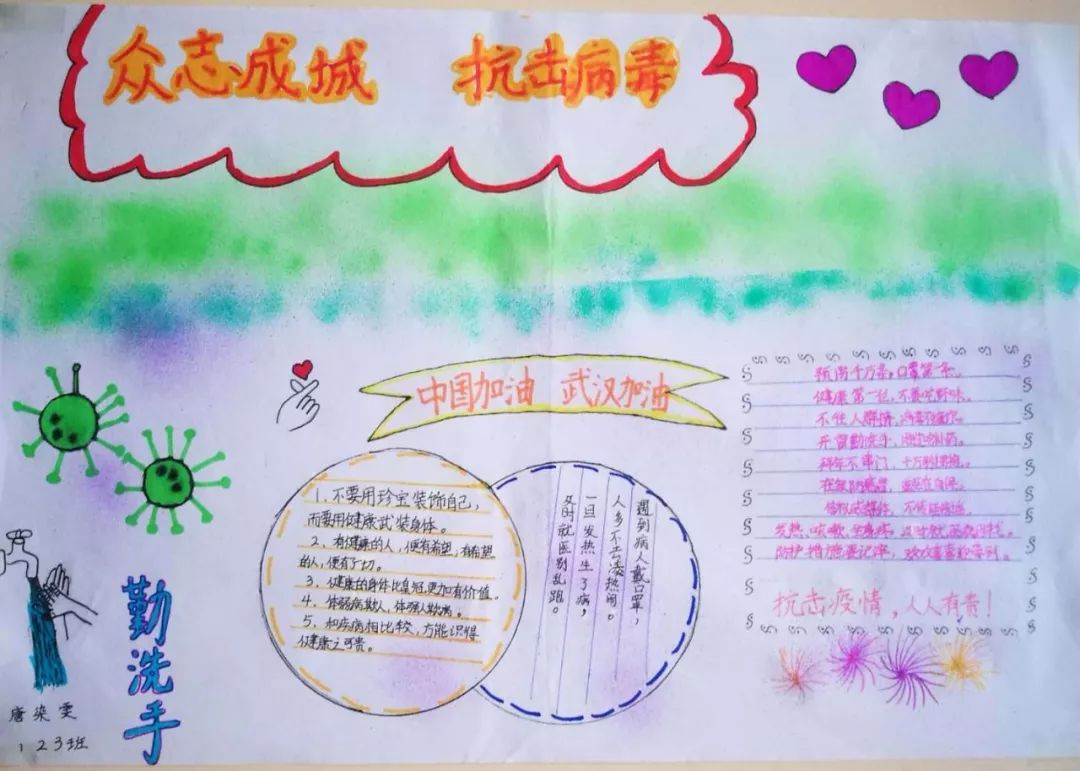 众志成城 抗击病毒
中国加油 武汉加油
1、不要用珍宝装饰自己，
而要用健康武装身体。
2、有健康的人，便有希望，有希望
的人，便有了一切。
3、健康的身体比皇冠更加有价值。
4、体弱病欺人，体强人欺病。
5、和疾病相比较，方能识得
健康之可贵。
遇到病人戴口罩，
人多不去凑热闹。
一旦发热生了病，
及时就医别乱跑。
预防千万条，口罩第一条。
健康第一位，不要吃野味。
不往人群挤，
开窗勤洗手，
拜年不串门，
在家防感冒，
发热、咳嗽、
防护措施要记牢，
抗击疫情，人人有责！
勤洗手
唐染雯
123班